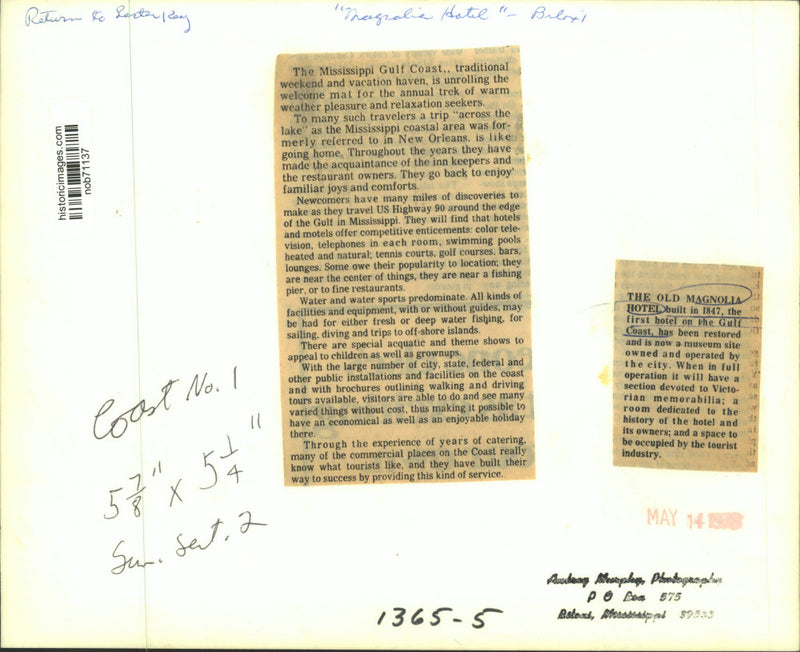 Return to Lester Kay
"Magnolia Hotel" - Biloxi
historicimages.com
nob71137
The Mississippi Gulf Coast,, traditional
weekend and vacation haven, is unrolling the
welcome mat for the annual trek of warm
weather pleasure and relaxation seekers.
To many such travelers a trip "across the
lake" as the Mississippi coastal area was for-
merly referred to in New Orleans, is like
going home. Throughout the years they have
made the acquaintance of the inn keepers and
the restaurant owners. They go back to enjoy
familiar joys and comforts.
Newcomers have many miles of discoveries to
make as they travel US Highway 90 around the edge
of the Gulf in Mississippi. They will find that hotels
and motels offer competitive enticements: color tele-
vision, telephones in each room, swimming pools
heated and natural; tennis courts, golf courses, bars,
lounges. Some owe their popularity to location; they
are near the center of things, they are near a fishing
pier, or to fine restaurants.
Water and water sports predominate. All kinds of
facilities and equipment, with or without guides, may
be had for either fresh or deep water fishing, for
sailing, diving and trips to off-shore islands.
There are special acquatic and theme shows to
appeal to children as well as grownups.
With the large number of city, state, federal and
other public installations and facilities on the coast
and with brochures outlining walking and driving
tours available, visitors are able to do and see many
varied things without cost, thus making it possible to
have an economical as well as an enjoyable holiday
there.
Through the experience of years of catering,
many of the commercial places on the Coast really
know what tourists like, and they have built their
way to success by providing this kind of service.
THE OLD MAGNOLIA
HOTEL, built in 1847, the
first hotel on the Gulf
Coast, has been restored
and is now a museum site
owned and operated by
the city. When in full
operation it will have a
section devoted to Victo-
rian memorabilia; a
room dedicated to the
history of the hotel and
its owners; and a space to
be occupied by the tourist
industry.
Coast No. 1
5 7/8" X 5 1/4"
Sun. Sect. 2
MAY 14
1365-5
Murphy, Photographer
P O Box 575
Biloxi, Mississippi 39533